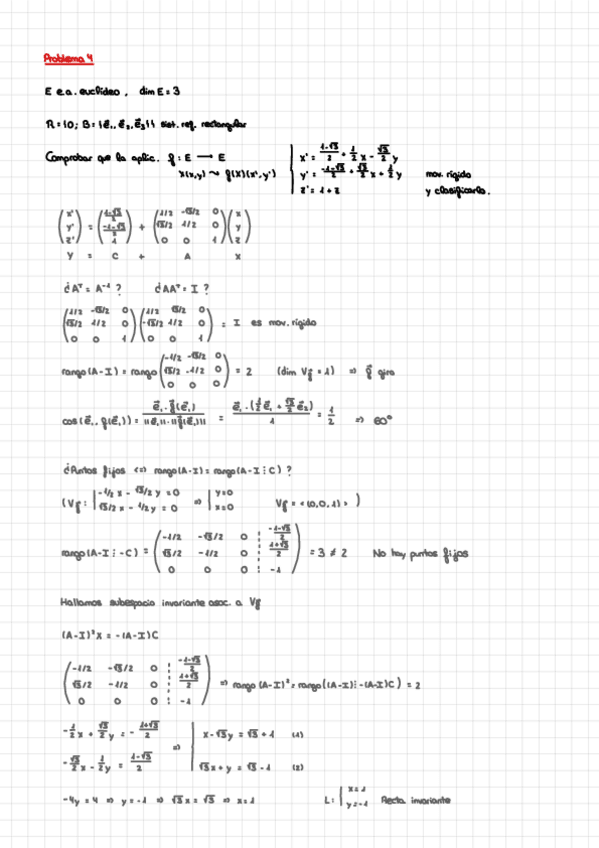 Problema 4
E e.a. euclídeo, dim E = 3
R = {O; B = {e⃗₁, e⃗₂, e⃗₃}} sist. ref. rectangular
Comprobar que la aplic. f: E → E
X(x,y) ⇝ f(X)(x',y')
x' = (1-√3)/2 + 1/2 x - √3/2 y
y' = (-1-√3)/2 + √3/2 x + 1/2 y
z' = 1 + z
mov. rígido
y clasificarlo.
(x' y' z') = ((1-√3)/2, (-1-√3)/2, 1) + (1/2 -√3/2 0; √3/2 1/2 0; 0 0 1) (x y z)
Y = C + A X
¿Aᵀ = A⁻¹? ¿AAᵀ = I?
(1/2 -√3/2 0; √3/2 1/2 0; 0 0 1) (1/2 √3/2 0; -√3/2 1/2 0; 0 0 1) = I es mov. rígido
rango(A-I) = rango (-1/2 -√3/2 0; √3/2 -1/2 0; 0 0 0) = 2 (dim Vf = 1) ⇒ f⃗ giro
cos(e⃗₁, f(e⃗₁)) = e⃗₁·f⃗(e⃗₁) / ||e⃗₁||·||f⃗(e⃗₁)|| = e⃗₁·(1/2 e⃗₁ + √3/2 e⃗₂) / 1 = 1/2 ⇒ 60°
¿Puntos fijos ⇔ rango(A-I) = rango(A-I ⋮ C)?
(Vf: | -1/2 x - √3/2 y = 0
√3/2 x - 1/2 y = 0 ⇒ | y=0
x=0 Vf = <(0,0,1)>)
rango(A-I ⋮ -C) = (-1/2 -√3/2 0 ⋮ -(1-√3)/2; √3/2 -1/2 0 ⋮ (1+√3)/2; 0 0 0 ⋮ -1) = 3 ≠ 2 No hay puntos fijos
Hallamos subespacio invariante asoc. a Vf
(A-I)²X = -(A-I)C
(-1/2 -√3/2 0 ⋮ -(1-√3)/2; √3/2 -1/2 0 ⋮ (1+√3)/2; 0 0 0 ⋮ -1) ⇒ rango(A-I)² = rango((A-I)⋮-(A-I)C) = 2
-1/2 x + √3/2 y = -(1+√3)/2
-√3/2 x - 1/2 y = (1-√3)/2
⇒ | x-√3y = √3+1 (1)
√3x + y = √3-1 (2)
-4y = 4 ⇒ y = -1 ⇒ √3x = √3 ⇒ x = 1 L: | x=1
y=-1 Recta invariante